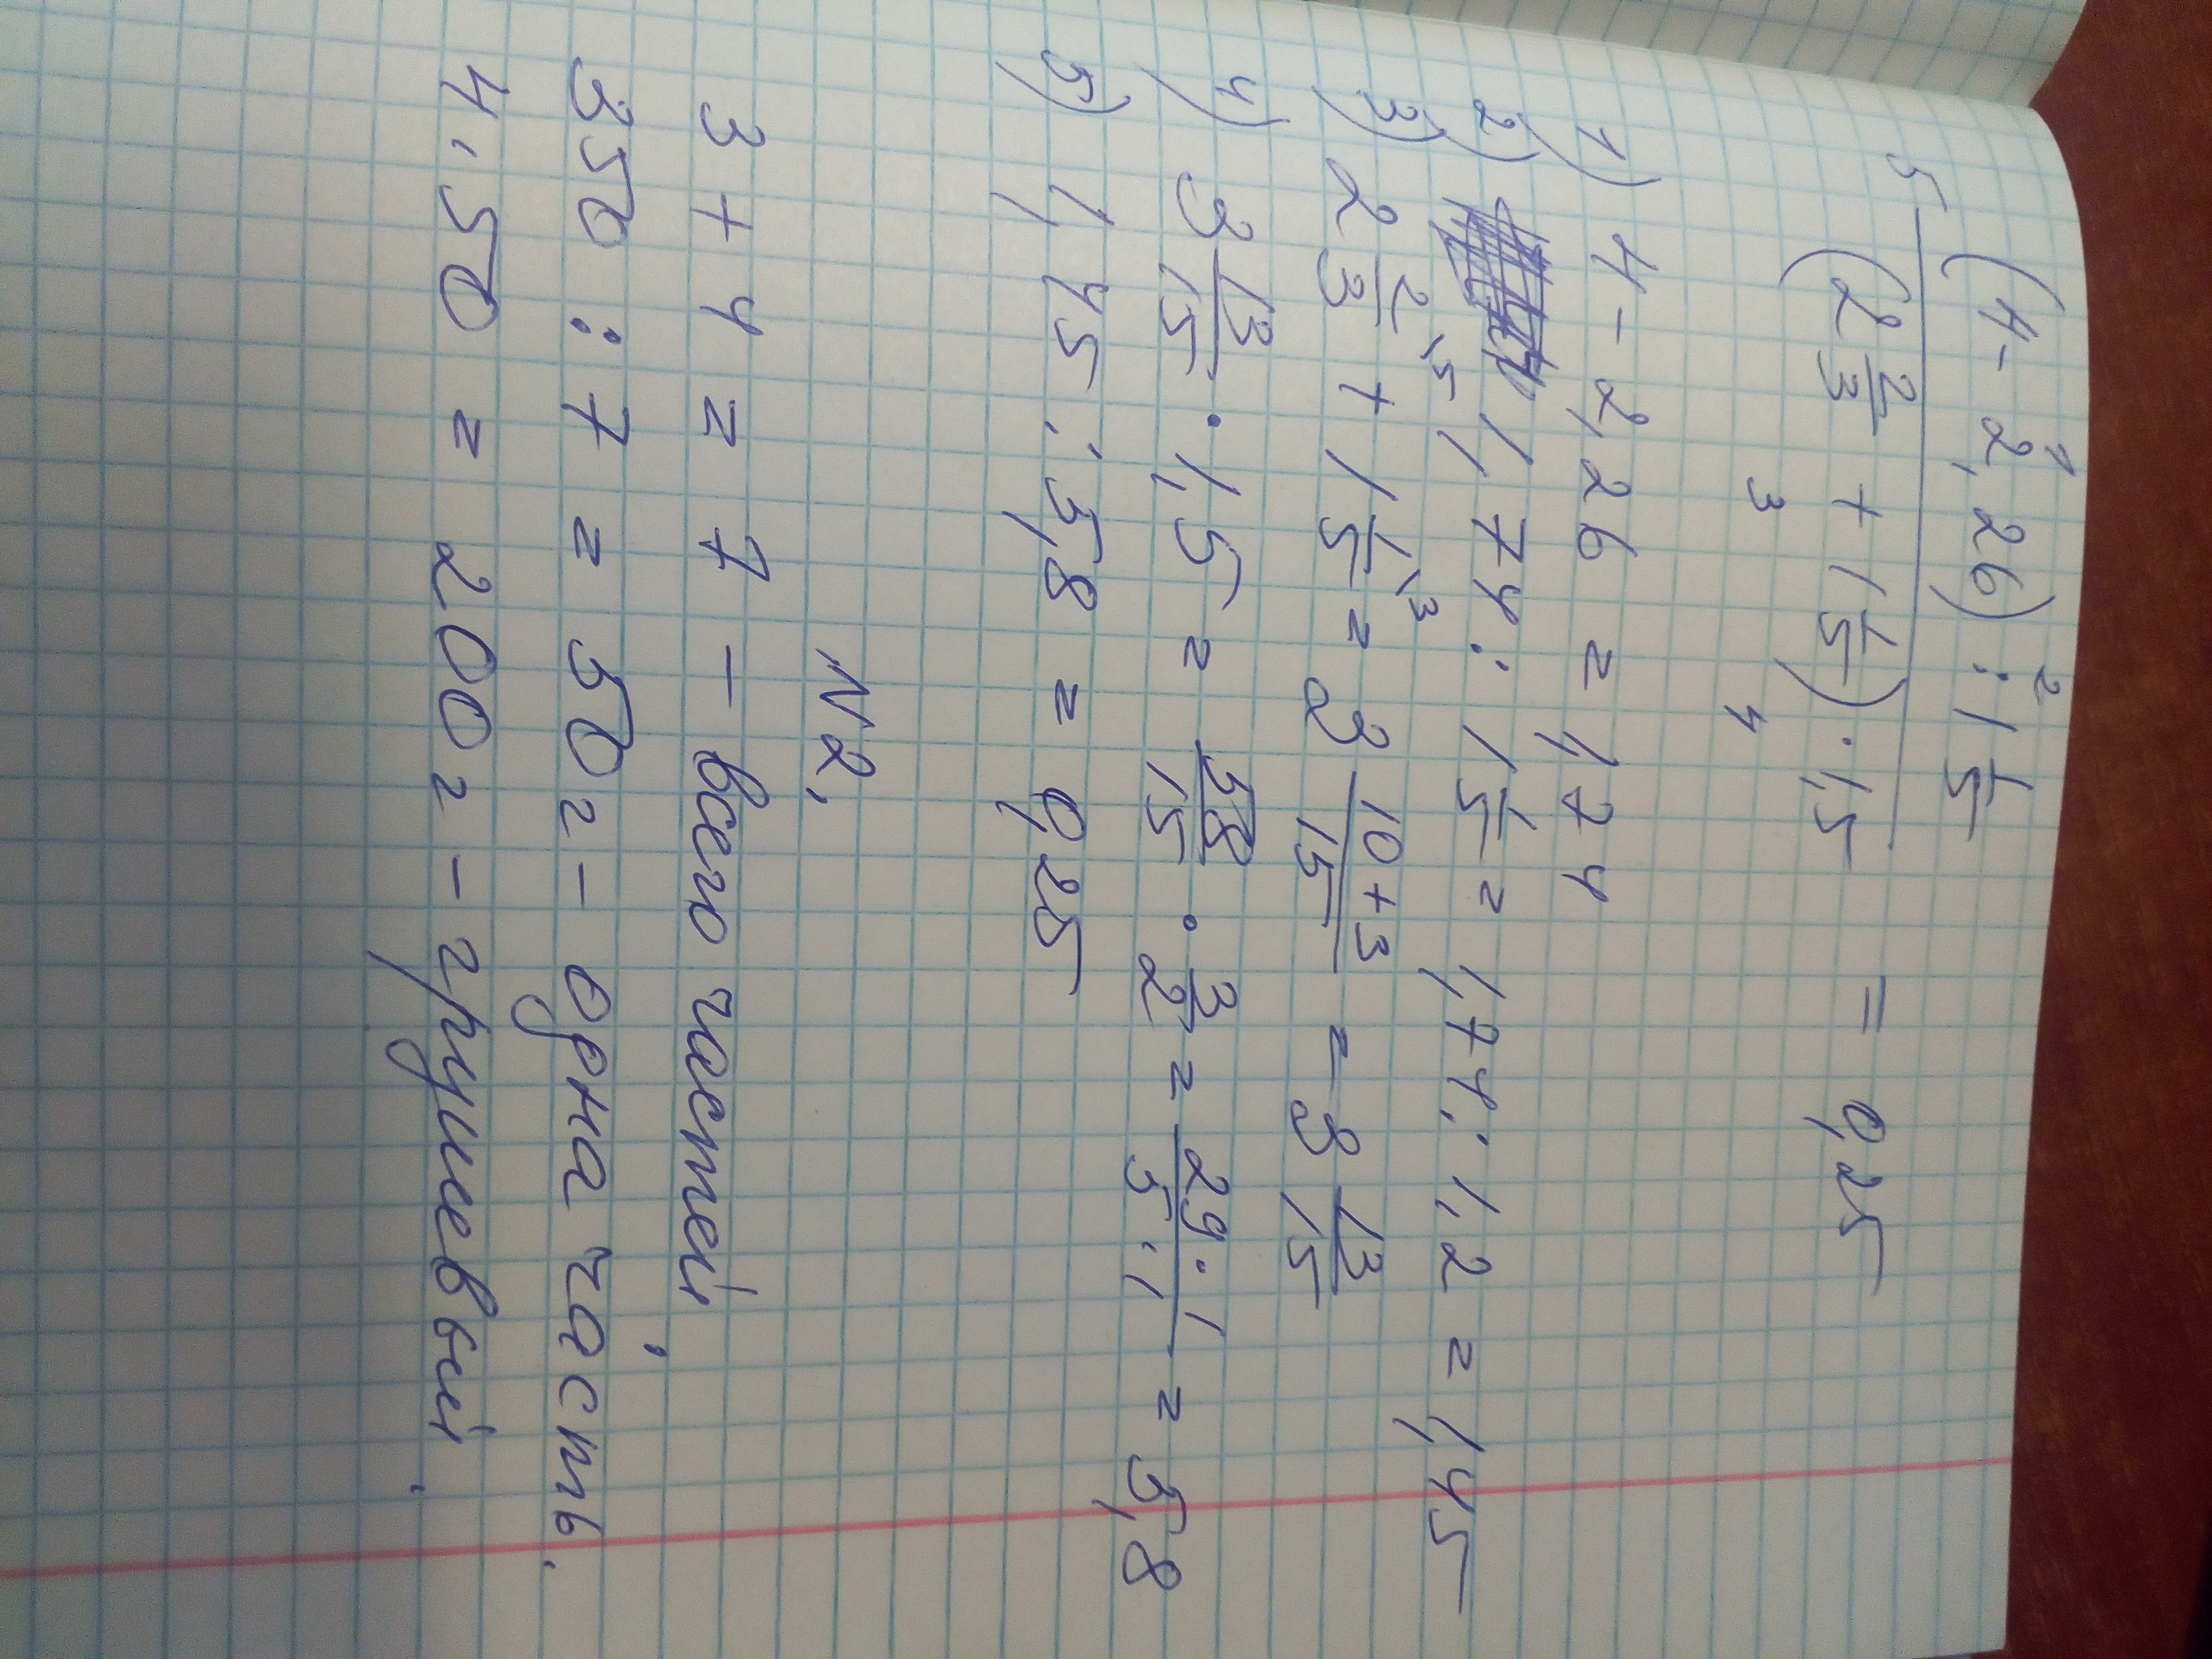 5 (4 - 2,26) : 1 1/5
(2 2/3 + 1 1/5) · 1,5 = 0,25
1) 4 - 2,26 = 1,74
2) 1,74 : 1 1/5 = 1,74 : 1,2 = 1,45
3) 2 2/3 \5 + 1 1/5 \3 = 3 10+3/15 = 3 13/15
4) 3 13/15 · 1,5 = 58/15 · 3/2 = 29·1/5·1 = 5,8
5) 1,45 : 5,8 = 0,25
N2.
3 + 4 = 7 - всего частей
350 : 7 = 50 г - одна часть.
4 · 50 = 200 г - грушевый.